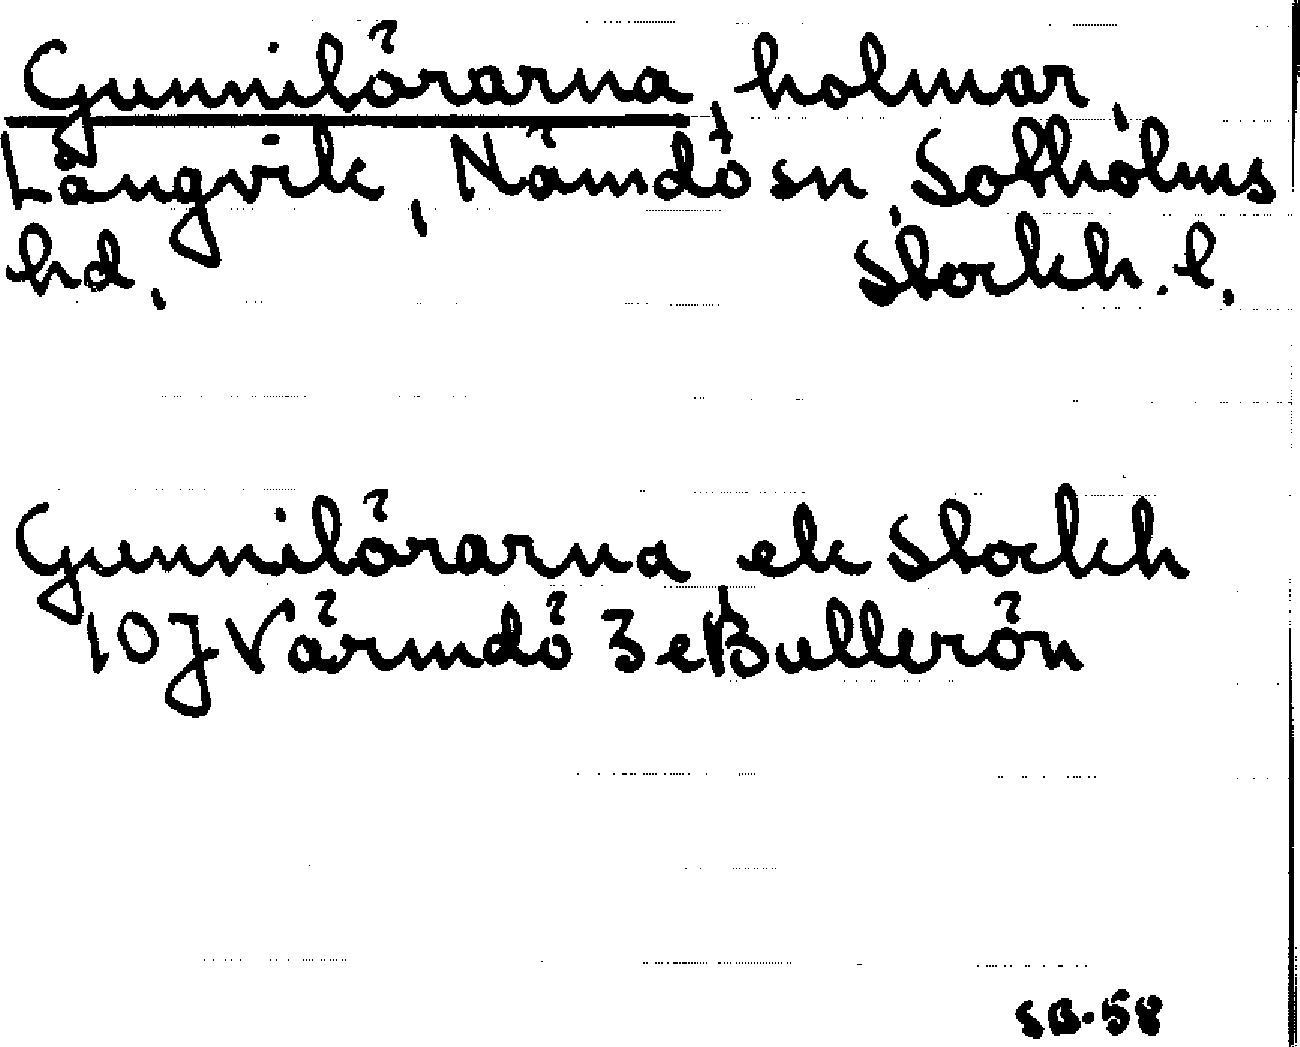 Gunnilörarna, holmar,
Långvik, Nämdö sn, Sotholms
hd. Stockh. l.
Gunnilörarna ek Stockh
10J Värmdö 3e Bullerön
SB-58